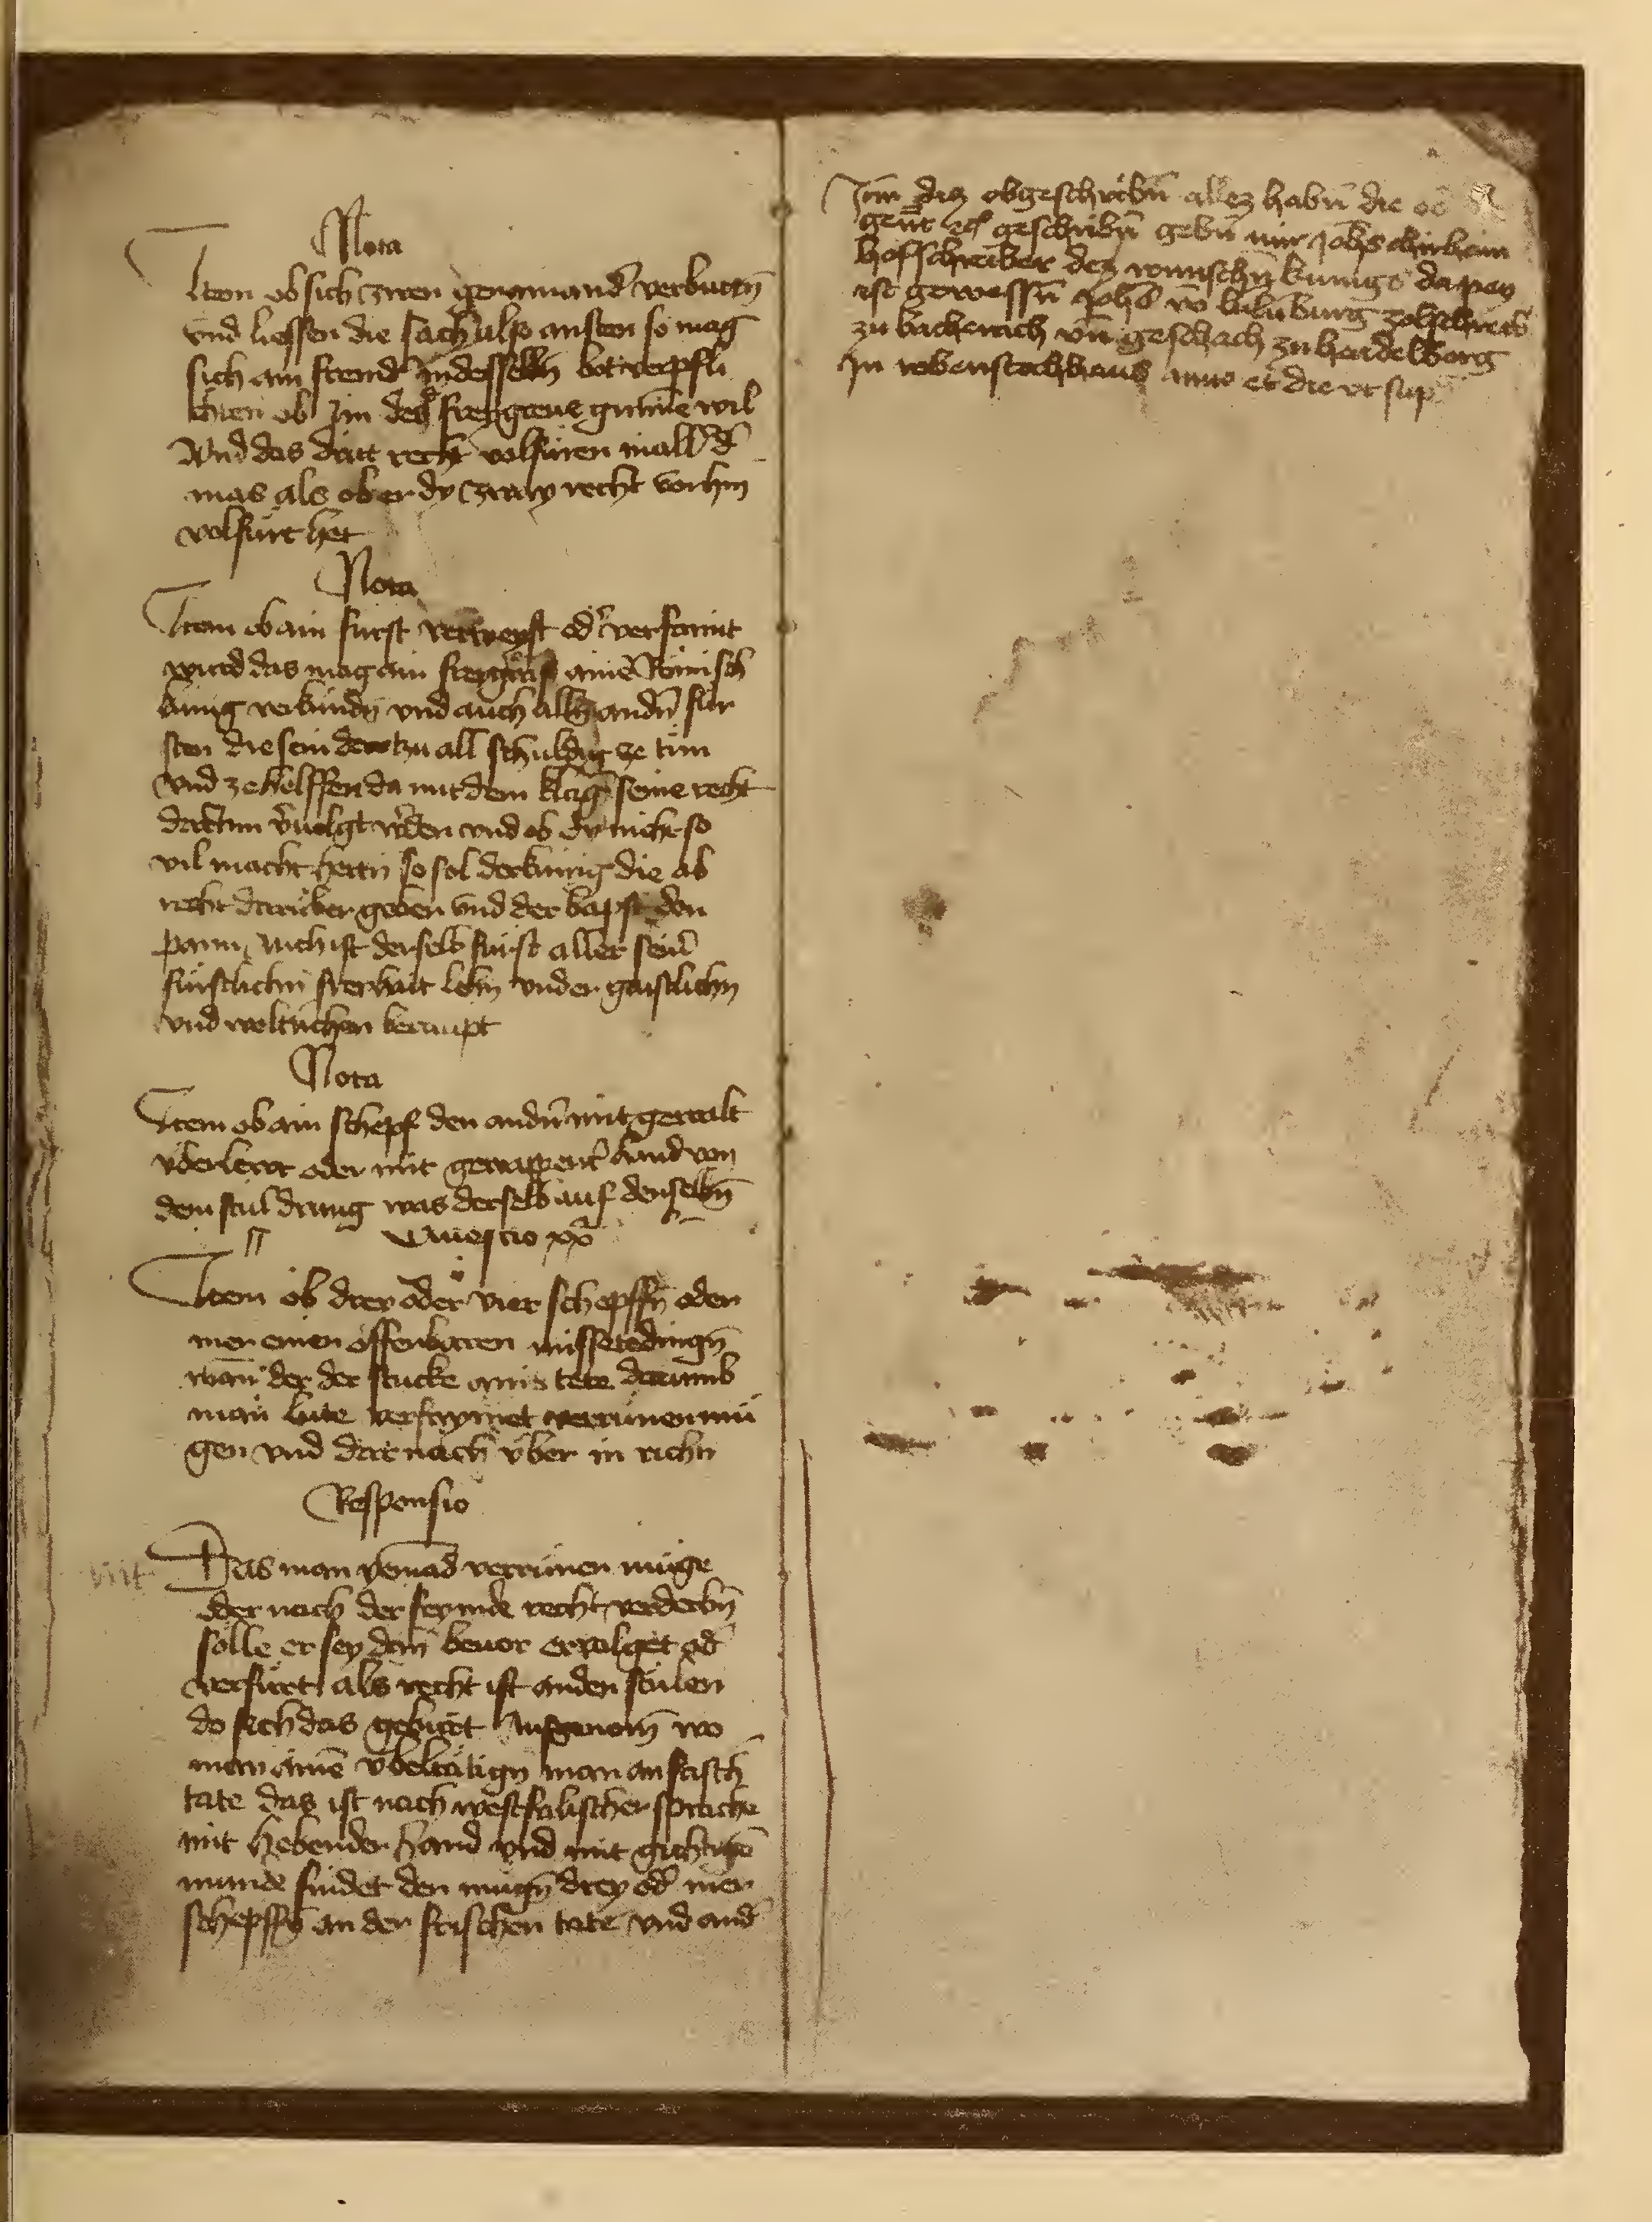 Nota
Item ob sich zwen genainand' verbuttn̄
vnd liessen die sach also ansten so mag
sich ain fremd' in desselbn̄ bot verpfli
chten ob Jm des freygreue gunnē wil
Vnd das dritt recht volfüren in all d'
mas als ob er dy zway recht vorhin
volfürt het
Nota
Item ob ain fürst verweyst od' verfaimt
wurd das mag ain freygraf ainē Römisch
künig verkündn̄ vnd auch alln̄ andn̄ für
sten die sein dartzu all schuldig ze tün
vnd ze helffen da mit dem klag' seine recht
darinn v'uolgt w'den vnd ob dy nicht so
vil macht hettn̄ so sol der künig die ab
recht darüber geben vnd der bapst den
pann, Auch ist derselb fürst aller sein'
fürstlichn̄ freyhait lehn̄ vnder gaistlichn̄
vnd weltlichen beraupt
Nota
Item ob ain schepf den andn̄ mit gewalt
vberlewt oder mit gewappent' hand von
dem stul drung was derselb auf denselbn̄
Questio xx
Item ob drey oder vier schepffn̄ oder
mer einen offenbaren missetedingn̄
man der der stucke ains tete darumb
man lüte verfaymet verrünen mü
gen vnd dar nach vber in richtn̄
Responsio
Das man yemād verrünen müge
oder nach der feymde recht verderbn̄
sölle er sey dan̄ beuor eruolget od'
verfürt als recht ist an den stülen
do sich das gebürt Ausgenom̄ wo
man ainē vbeltätign̄ man an frisch'
tate das ist nach westfalischer sprache
mit hebender hand vnd mit gichtigē
munde findet den mügn̄ drey od' mer
schepffn̄ an der frischen tate vnd and'
Jtm̄ diz obgeschribn̄ allez habn̄ die
gen̄t geschribn̄ gebn̄ mir Joh̄s kirchaim
hofschreiber dez romischn̄ kunigs da pey
ist gewessn̄ Joh̄s vo zolschreib'
zu bacherach vn̄ geschach zu haidelberg
Jn anno et die vt sup̄